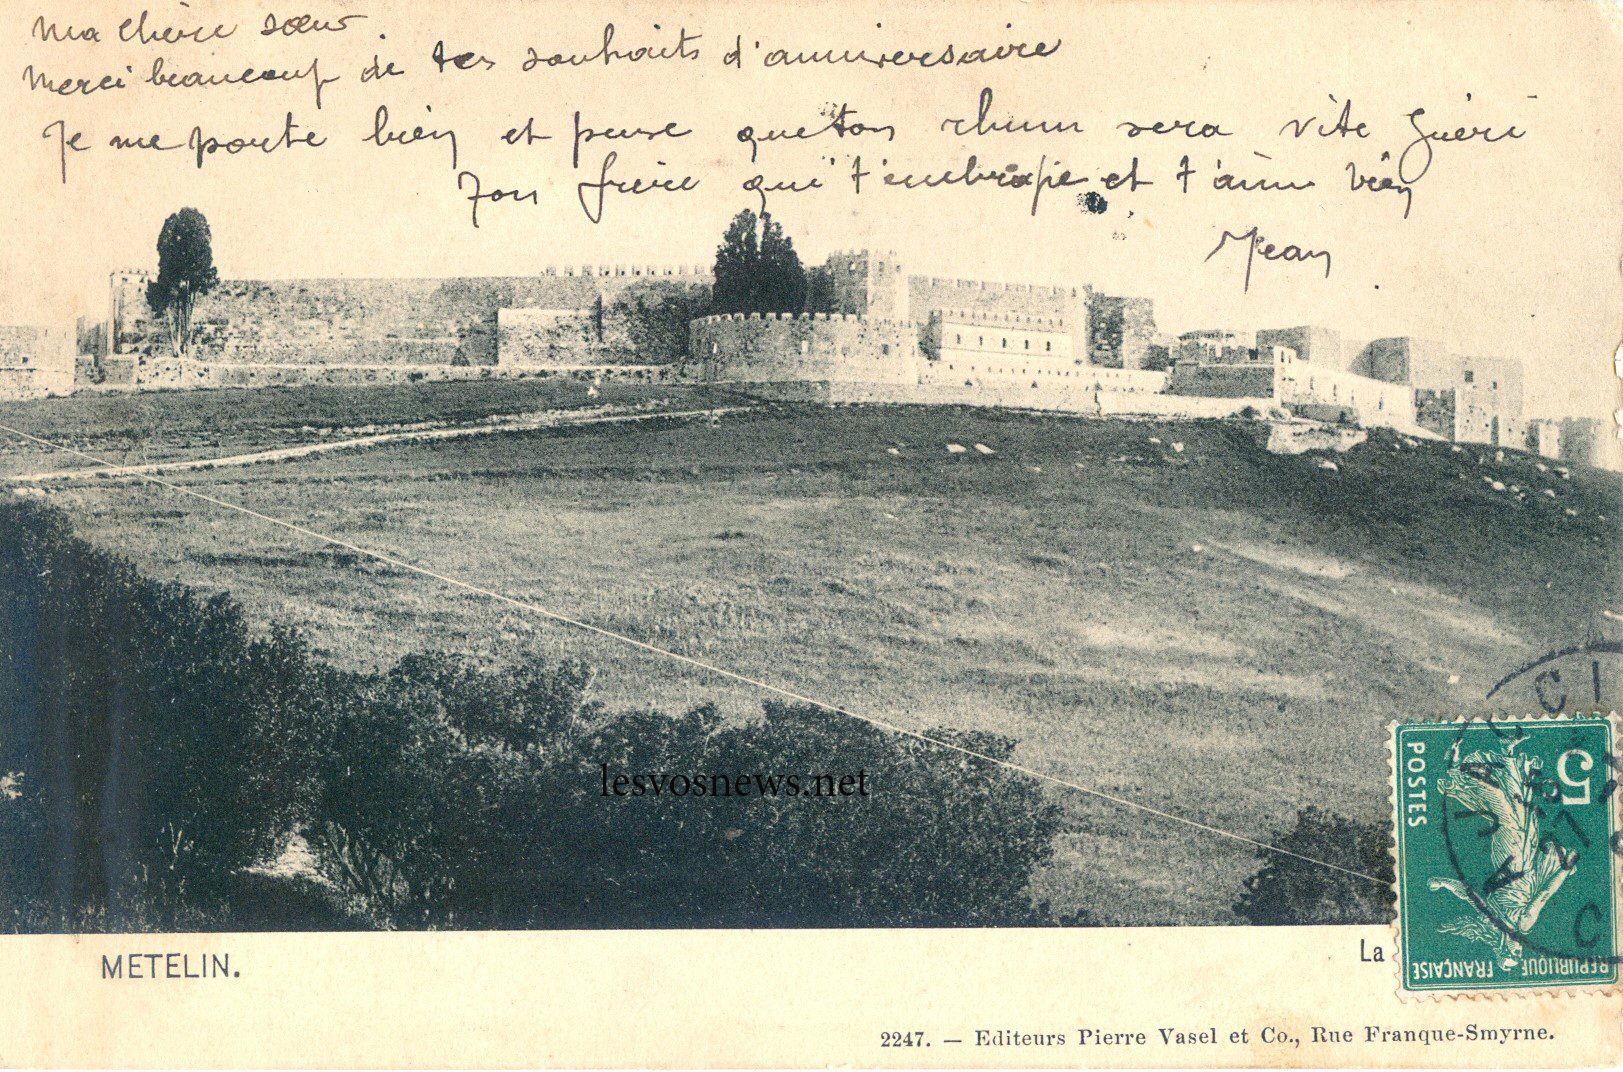 Ma chère sœur
Merci beaucoup de tes souhaits d'anniversaire
Je me porte bien et pense que ton rhum sera vite guéri
Ton frère qui t'embrasse et t'aime bien
Jean
lesvosnews.net
AJACCIO
27
C
5
POSTES
REPUBLIQUE FRANÇAISE
METELIN.
La
2247. — Editeurs Pierre Vasel et Co., Rue Franque-Smyrne.